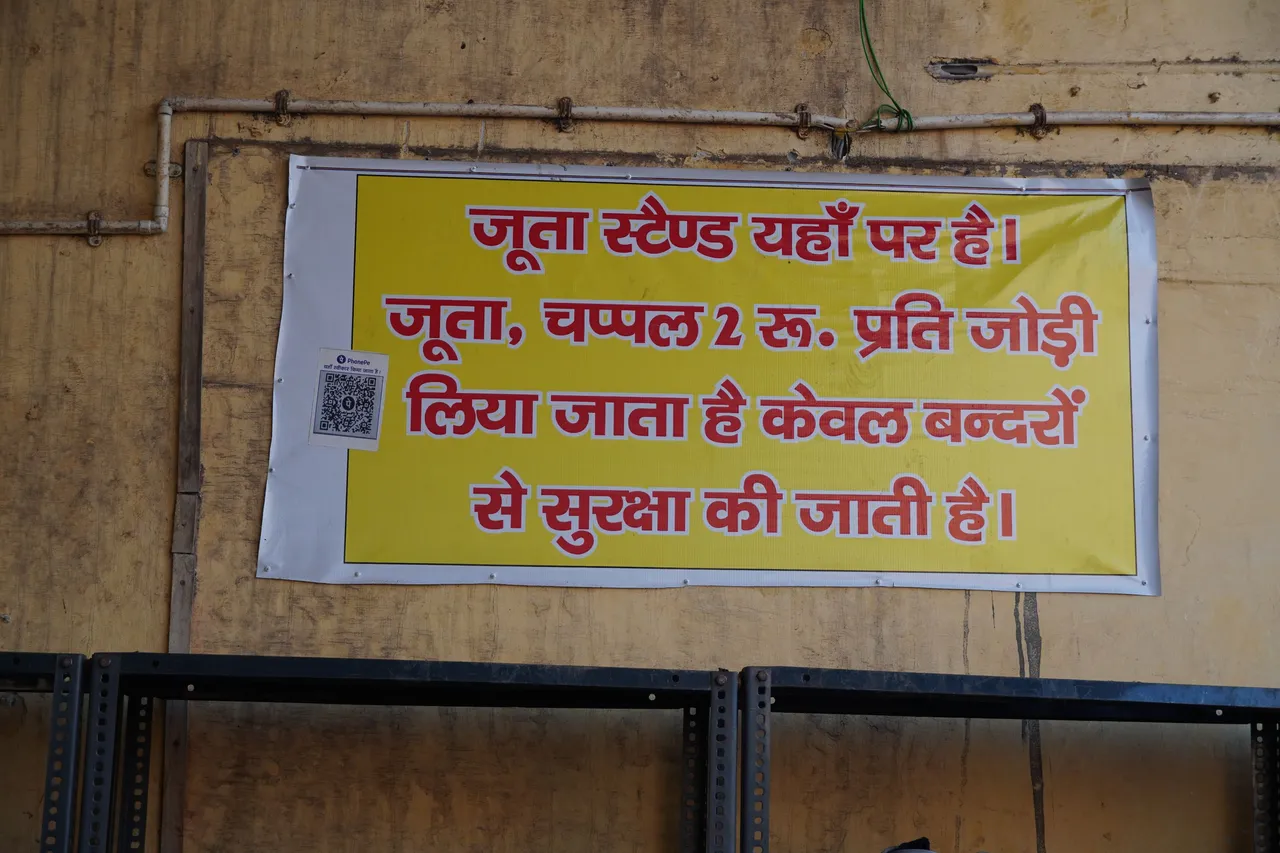 जूता स्टैण्ड यहाँ पर है।
जूता, चप्पल 2 रू. प्रति जोड़ी
लिया जाता है केवल बन्दरों
से सुरक्षा की जाती है।
PhonePe
यहाँ स्वीकार किया जाता है।